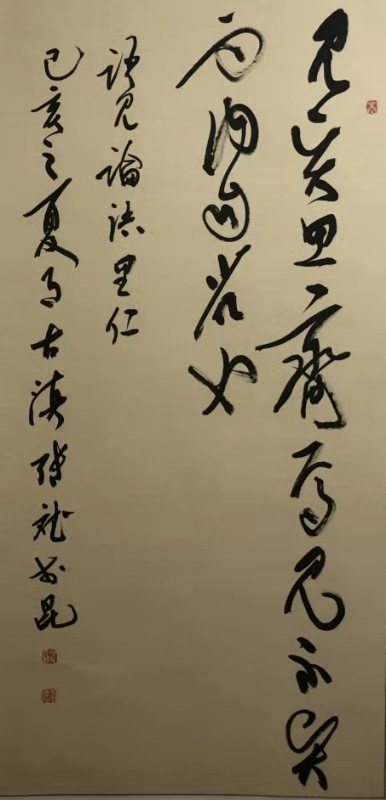 见贤思齐焉见不贤
而内自省也
语见论语里仁
己亥之夏月古滇张斌书昆